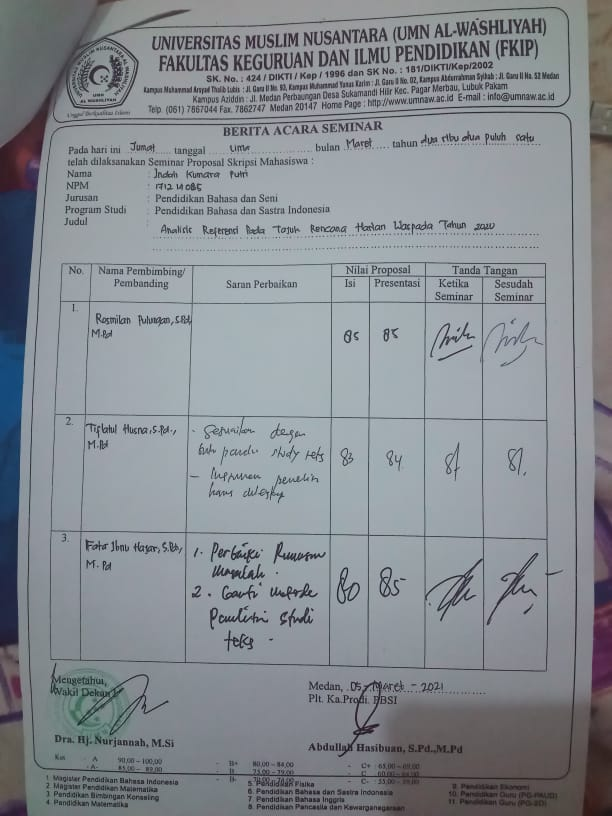 UNIVERSITAS MUSLIM NUSANTARA (UMN AL-WASHLIYAH)
FAKULTAS KEGURUAN DAN ILMU PENDIDIKAN (FKIP)
SK. No. : 424 / DIKTI / Kep / 1996 dan SK No. : 181/DIKTI/Kep/2002
Kampus Muhammad Arsyad Thalib Lubis : Jl. Garu II No. 93, Kampus Muhammad Yunus Karim : Jl. Garu II No. 02, Kampus Abdurrahman Syihab : Jl. Garu II No. 52 Medan
Kampus Aziddin : Jl. Medan Perbaungan Desa Sukamandi Hilir Kec. Pagar Merbau, Lubuk Pakam
Telp. (061) 7867044 Fax. 7862747 Medan 20147 Home Page : http://www.umnaw.ac.id E-mail : info@umnaw.ac.id
UMN
AL WASHLIYAH
BERITA ACARA SEMINAR
Pada hari ini Jumat tanggal Lima bulan Maret tahun dua ribu dua puluh satu
telah dilaksanakan Seminar Proposal Skripsi Mahasiswa :
Nama : Indah Kumara Putri
NPM :
Jurusan : Pendidikan Bahasa dan Seni
Program Studi : Pendidikan Bahasa dan Sastra Indonesia
Judul : Analisis Referensi Pada Tajuk Rencana Harian Waspada Tahun 2020
No. Nama Pembimbing/ Pembanding Saran Perbaikan Nilai Proposal Tanda Tangan
Isi Presentasi Ketika Seminar Sesudah Seminar
1. Rosmilan Pulungan, S.Pd, M.Pd 85 85
2. Tiflatul Husna, S.Pd., M.Pd 83 84
- Sesuaikan dengan
buku pandu study teks
- Instrumen penelitian
harus dilengkapi
3. Fatir Ibnu Hajar, S.Pd, M.Pd 80 85
1. Perbaiki Rumusan
masalah.
2. Ganti metode
Penelitian studi
teks.
Mengetahui,
Wakil Dekan
Dra. Hj. Nurjannah, M.Si
Medan, 05 - Maret - 2021
Plt. Ka.Prodi. PBSI
Abdullah Hasibuan, S.Pd.,M.Pd
Ket : - A 90,00 - 100,00 - B+ 80,00 - 84,00 - C+ 65,00 - 69,00
- A- 85,00 - 89,00 - B 75,00 - 79,00 - C 60,00 - 64,00
- B- 70,00 - 74,00 - C- 55,00 - 59,00
1. Magister Pendidikan Bahasa Indonesia
2. Magister Pendidikan Matematika
3. Pendidikan Bimbingan Konseling
4. Pendidikan Matematika
5. Pendidikan Fisika
6. Pendidikan Bahasa dan Sastra Indonesia
7. Pendidikan Bahasa Inggris
8. Pendidikan Pancasila dan Kewarganegaraan
9. Pendidikan Ekonomi
10. Pendidikan Guru (PG-PAUD)
11. Pendidikan Guru (PG-SD)